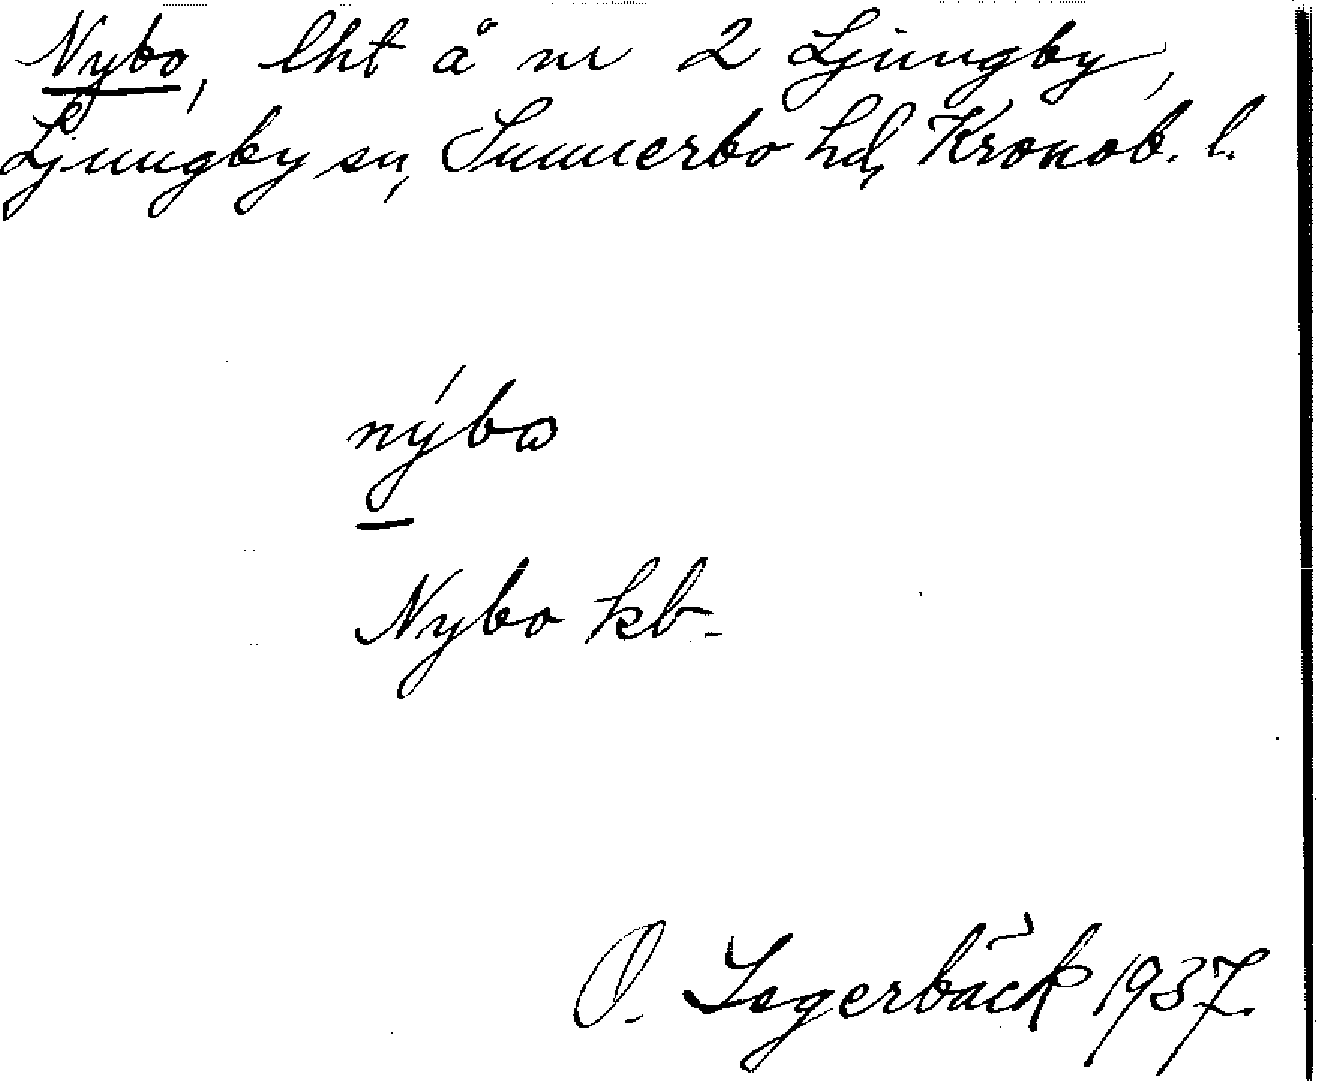 Nybo, lht å nr 2 Ljungby,
Ljungby sn, Sunnerbo hd, Kronob. l.
nýbω
Nybo kb.
O. Segerbäck 1937.